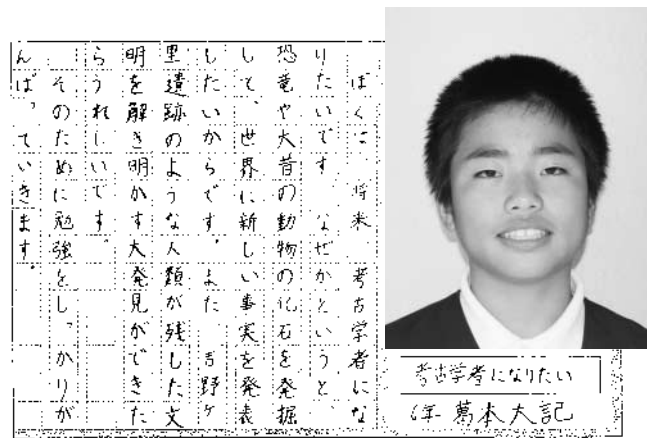 ぼくは、将来、考古学者にな
りたいです。なぜかというと、
恐竜や大昔の動物の化石を発掘
して、世界に新しい事実を発表
したいからです。また、吉野ヶ
里遺跡のような人類が残した文
明を解き明かす大発見ができた
らうれしいです。
そのために勉強をしっかりが
んばっていきます。
考古学者になりたい
6年 葛本大記